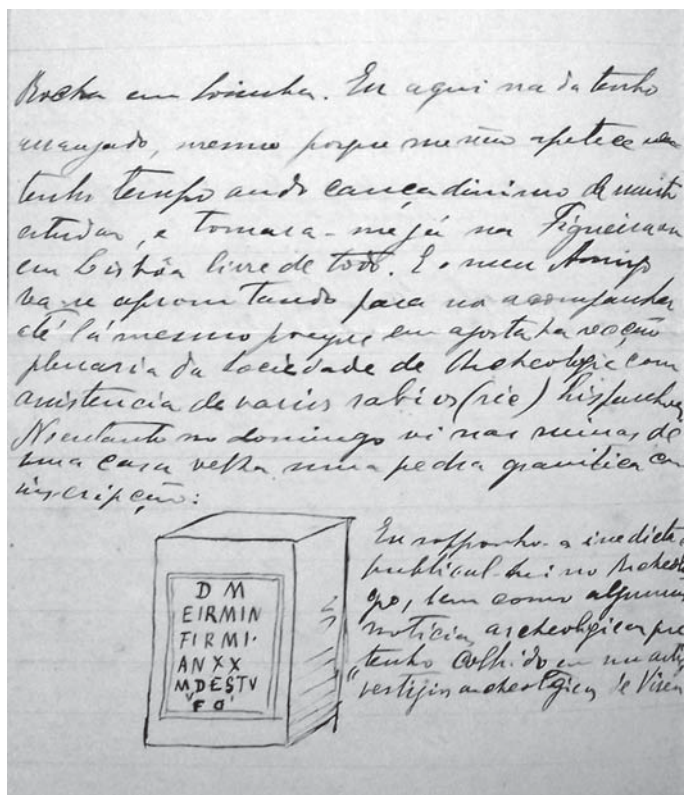 Rocha em Coimbra. Eu aqui nada tenho
arranjado, mesmo porque nem
tenho tempo ando cançadissimo de muito
estudar, e tomara-me já na Figueira ou
em Lisbôa livre de todo. E o meu Amigo
va-se apromtando para nos acompanhar
até lá mesmo porque em agosto ha secção
plenaria da Sociedade de Archeologia com
assistencia de varios sabios (sic) hispanhoes
No entanto no domingo vi nas ruinas de
uma casa velha uma pedra granitica com
inscripção:
D M
EIRMIN
FIRMI·
AN XX
M DESTV
F O
Eu supponho-a inedicta e
publical-hei no Archeolo
go, bem como algumas
noticias archeologicas que
tenho colhido em
"vestigios archeologicos de Viseu